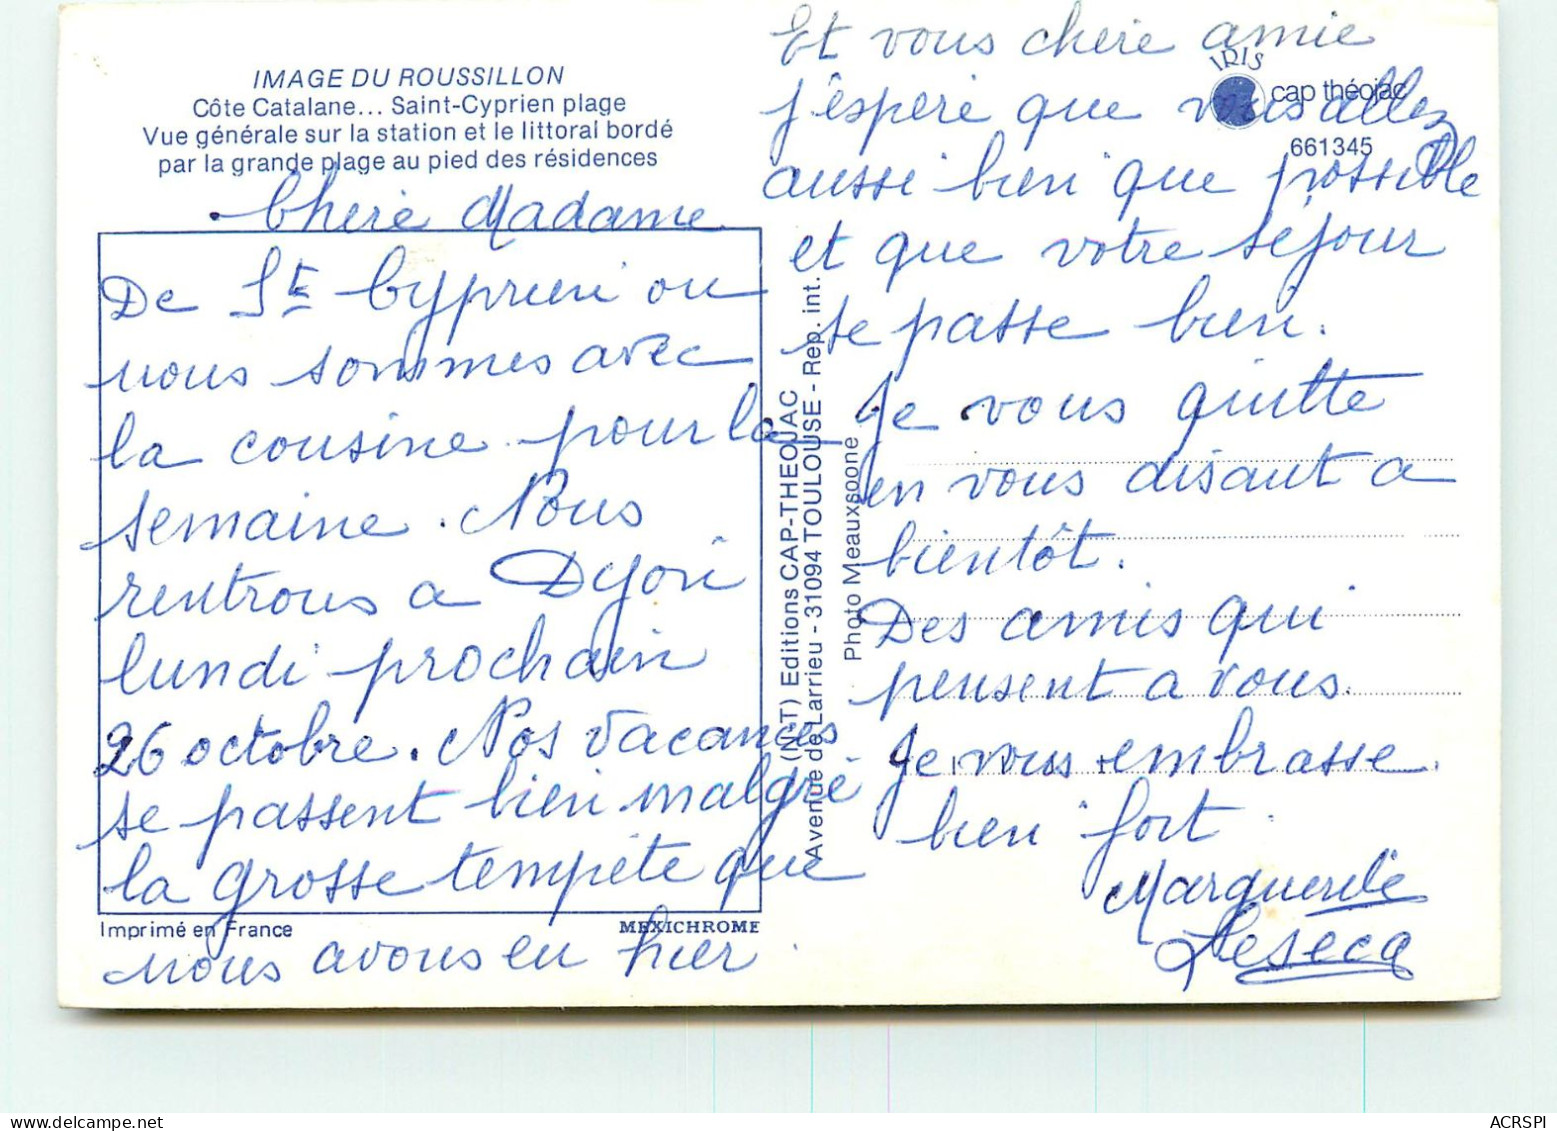 IMAGE DU ROUSSILLON
Côte Catalane... Saint-Cyprien plage
Vue générale sur la station et le littoral bordé
par la grande plage au pied des résidences
Chère Madame
De St Cyprien ou
nous sommes avec
la cousine pour la
semaine. Nous
rentrons a Dijon
lundi prochain
26 octobre. Nos vacances
se passent bien malgré
la grosse tempête que
nous avons eu hier.
Imprimé en France
MEXICHROME
(NCT) Editions CAP-THEOJAC
Avenue de Larrieu - 31094 TOULOUSE - Rep. int.
Photo Meauxsoone
IRIS
cap théojac
661345
Et vous chère amie
j'espère que vous allez
aussi bien que possible
et que votre séjour
se passe bien.
Je vous quitte
en vous disant a
bientôt.
Des amis qui
pensent a vous.
Je vous embrasse
bien fort
Marguerite
Leseca
ACRSPI